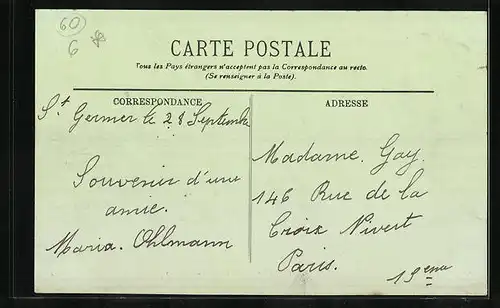 60
6
CARTE POSTALE
Tous les Pays étrangers n'acceptent pas la Correspondance au recto.
(Se renseigner à la Poste).
CORRESPONDANCE
St Germer le 28 Septembre
Souvenir d'une
amie.
Maria. Ohlmann
ADRESSE
Madame. Gay.
146 Rue de la
Croix Nivert
Paris.
15eme